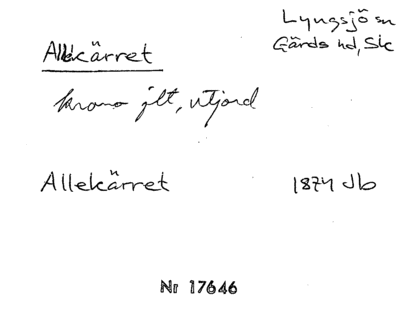 Lyngsjö sn
Allekärret
Gärds hd, Sk
krono jlt, utjord
Allekärret 1874 Jb
Nr 17646